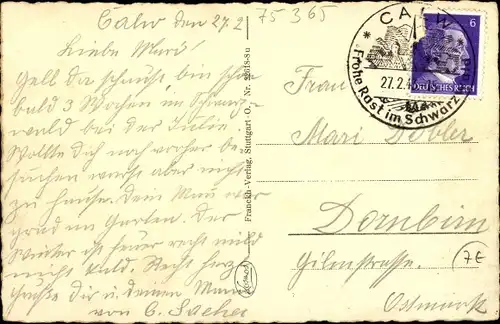 Calw den 27.2
Liebe Mari!
Gell da schaust bin schon
bald 3 Wochen im Schwarz-
wald bei der Julie.
Wollte dich noch vorher be-
suchen warst aber nicht
zu hause. Dein Man war
grad im Garten. Der
Winter ist heuer recht mild
nicht kald. Recht herz.
Grüße dir u. deinen Mann
von
75365
Franckh-Verlag, Stuttgart-O. Nr.
CALW
27.2.4
Frohe Rast im Schwarz
6
DEUTSCHES REICH
Frau
Mari Dobler
Dornbirn
Gilmstrasse.
Ostmark
7E